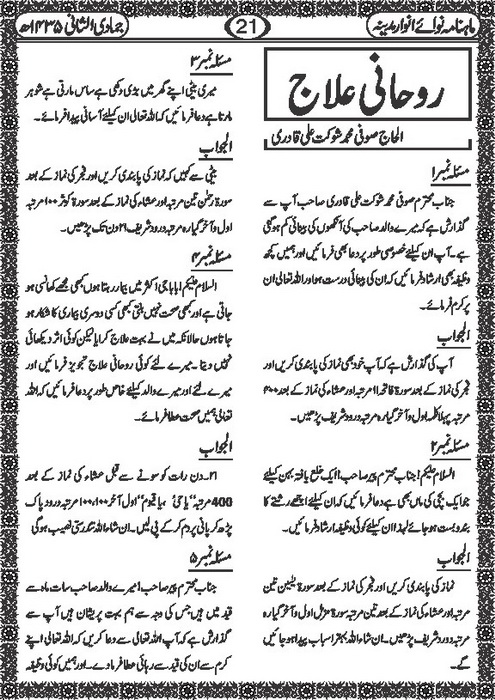 ماہنامہ نوائے انوار مدینہ
21
جمادی الثانی ۱۴۳۵ھ
روحانی علاج
الحاج صوفی محمد شوکت علی قادری
مسئلہ نمبر ۱
جناب محترم صوفی محمد شوکت علی قادری صاحب آپ سے
گذارش ہے کہ میرے والد صاحب کی آنکھوں کی بینائی کم ہو گئی
ہے۔ آپ ان کیلئے خصوصی طور پر دعا بھی فرمائیں اور ہمیں کچھ
وظیفہ بھی ارشاد فرمائیں کہ ان کی بینائی درست ہو اور اللہ تعالیٰ ان
پر کرم فرمائے۔
الجواب
آپ کی گذارش ہے کہ آپ خود بھی نماز کی پابندی کریں اور
فجر کی نماز کے بعد سورۃ فاتحہ ۱۱ مرتبہ اور عشاء کی نماز کے بعد ۴۰۰
مرتبہ پہلا کلمہ اول و آخر گیارہ مرتبہ درود شریف پڑھیں۔
مسئلہ نمبر ۲
السلام علیکم! جناب محترم پیر صاحب! ایک خلع یافتہ بہن کیلئے
جو ایک بچی کی ماں بھی ہے دعا فرمائیں کہ ان کیلئے اچھے رشتے کا
بندوبست ہو جائے لہذا ان کیلئے کوئی وظیفہ ارشاد فرمائیں۔
الجواب
نماز کی پابندی کریں اور فجر کی نماز کے بعد سورۃ یٰسین تین
مرتبہ اور عشاء کی نماز کے بعد تین مرتبہ سورۃ مزمل اول و آخر گیارہ
مرتبہ درود شریف پڑھیں۔ ان شاء اللہ بہتر اسباب پیدا ہو جائیں
گے۔
مسئلہ نمبر ۳
میری بیٹی اپنے گھر میں بڑی دکھی ہے ساس مارتی ہے شوہر
مارتا ہے دعا فرمائیں کہ اللہ تعالیٰ ان کیلئے آسانی پیدا فرمائے۔
الجواب
بیٹی سے کہیں کہ نماز کی پابندی کریں اور فجر کی نماز کے بعد
سورۃ رحمٰن تین مرتبہ اور عشاء کی نماز کے بعد سورۃ کوثر ۱۰۰ مرتبہ
اول و آخر گیارہ مرتبہ درود شریف ۲۱ دن تک پڑھیں۔
مسئلہ نمبر ۴
السلام علیکم! بابا جی اکثر میں بیمار رہتا ہوں کبھی مجھے کھانسی ہو
جاتی ہے اور کبھی صحت نہیں بنتی کبھی کسی دوسری بیماری کا شکار ہو
جاتا ہوں حالانکہ میں نے بہت علاج کرایا لیکن کوئی اثر دیکھائی
نہیں دیتا۔ میرے لئے کوئی روحانی علاج تجویز فرمائیں اور
میرے لئے اور میرے والد کیلئے خاص طور پر دعا فرمائیں کہ اللہ
تعالیٰ ہمیں صحت عطا فرمائے۔
الجواب
۲۱۔ دن رات کو سونے سے قبل عشاء کی نماز کے بعد
400 مرتبہ "یا حی، یا قیوم" اول آخر ۱۰۰، ۱۰۰ مرتبہ درود پاک
پڑھ کر پانی پر دم کر کے پی لیں۔ ان شاء اللہ تندرستی نصیب ہو گی
مسئلہ نمبر ۵
جناب محترم پیر صاحب! میرے والد صاحب سات ماہ سے
قید میں ہیں جس کی وجہ سے ہم بہت پریشان ہیں آپ سے
گذارش ہے کہ آپ اللہ تعالیٰ سے دعا کریں کہ اللہ تعالیٰ اپنے
کرم سے ان کی قید سے رہائی عطا فرما دے۔ اور ہمیں کوئی وظیفہ